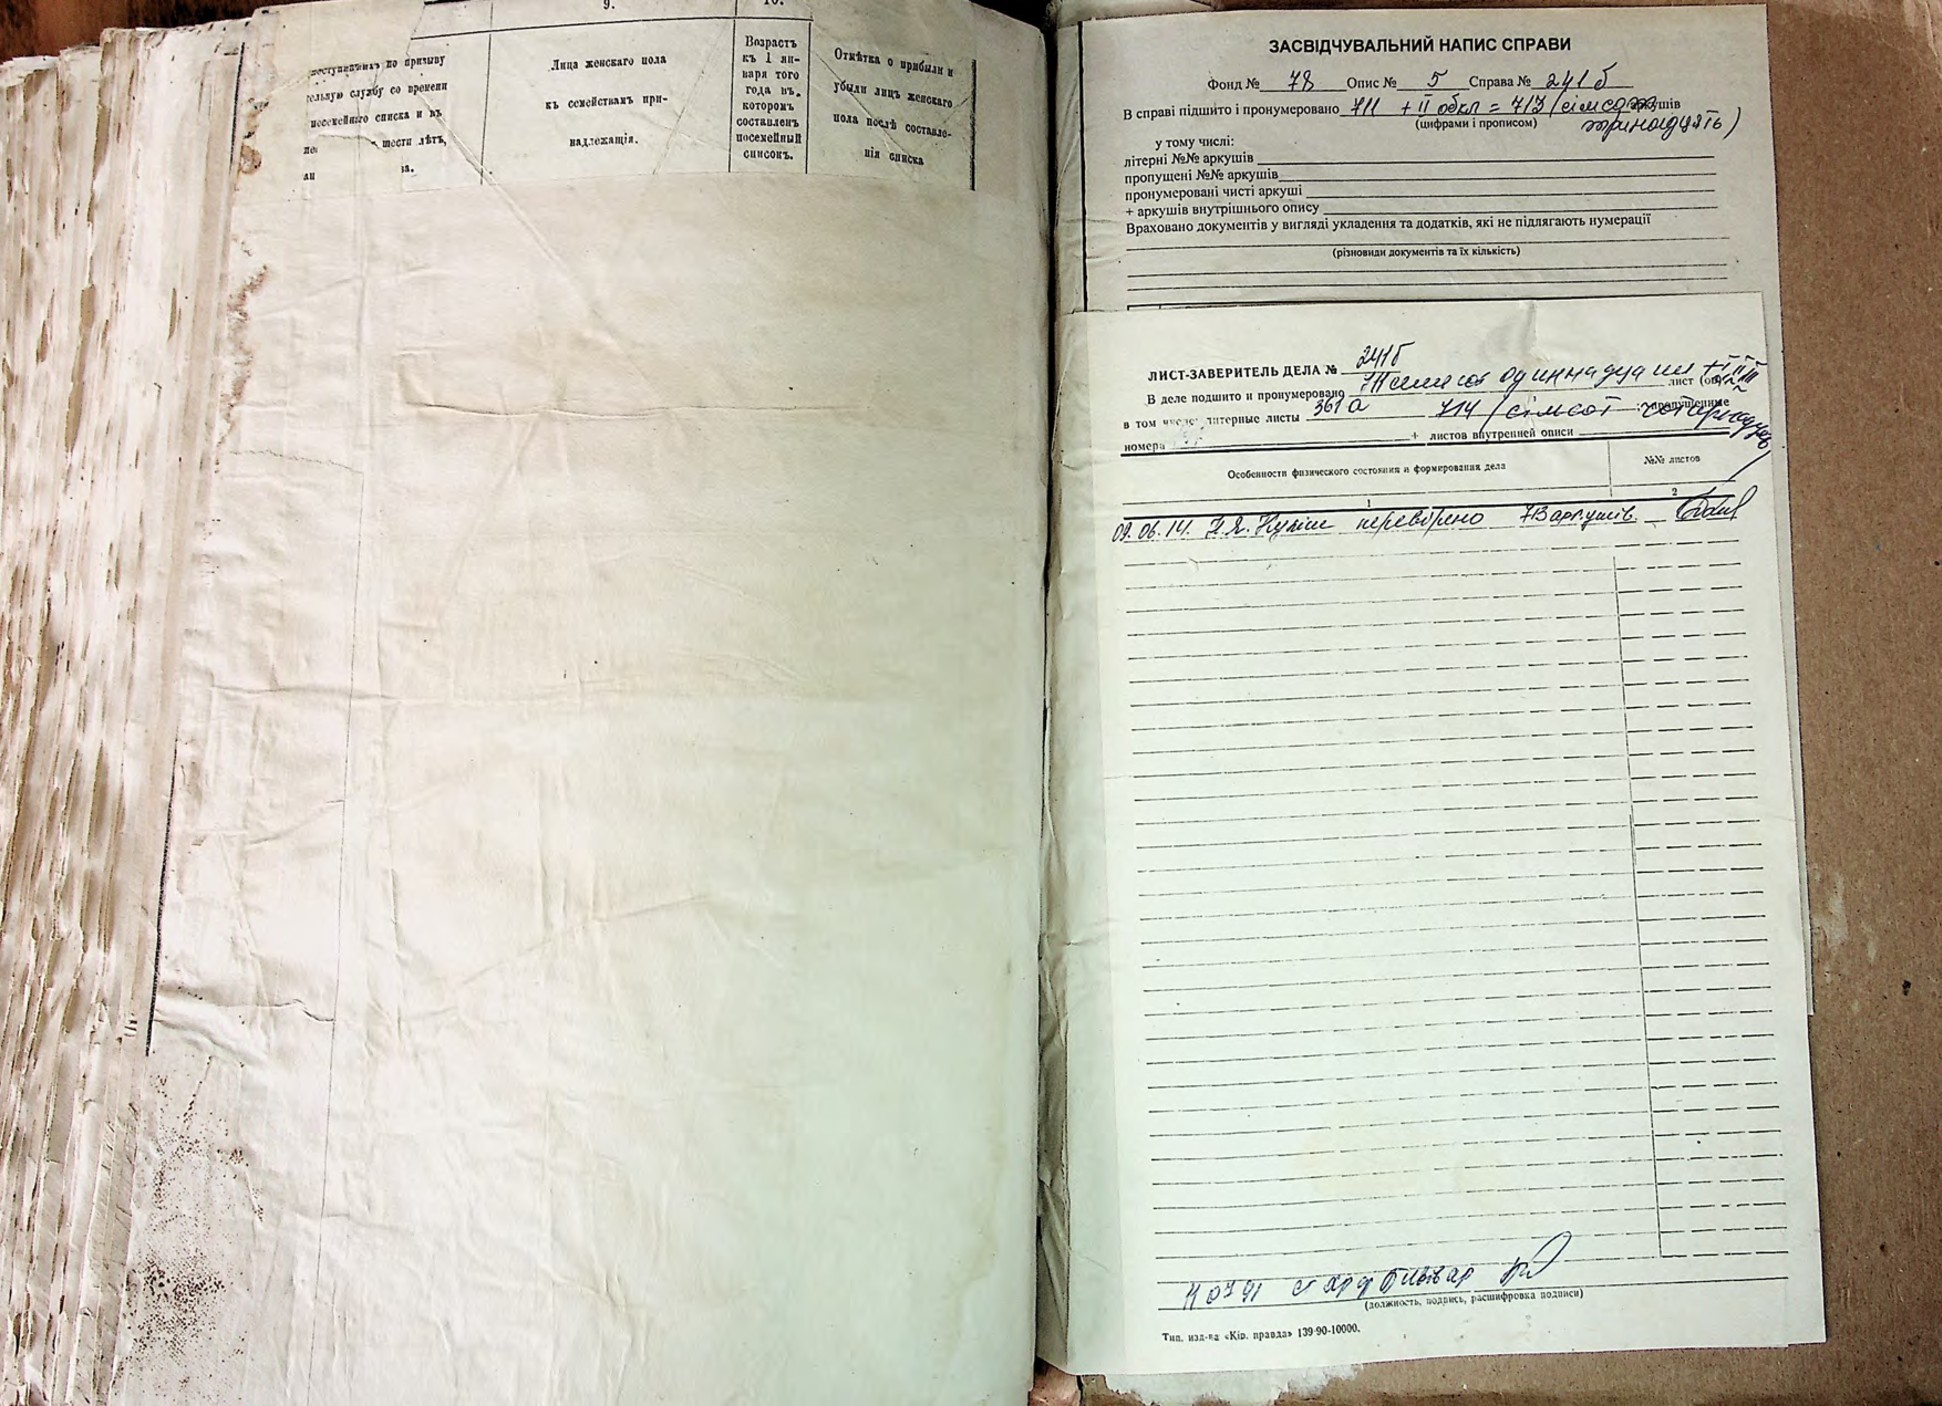 9.
10.
по призыву
службу со времени
посемейнаго списка и въ
шести лѣтъ,
Лица женскаго пола
къ семействамъ при-
надлежащія.
Возрастъ
къ 1 ян-
варя того
года въ
которомъ
составленъ
посемейный
списокъ.
Отмѣтка о прибыли и
убыли лицъ женскаго
пола послѣ составле-
нія списка
ЗАСВІДЧУВАЛЬНИЙ НАПИС СПРАВИ
Фонд № 78 Опис № 5 Справа № 241б
В справі підшито і пронумеровано 711 + II обкл = 713 (сімсот аркушів
(цифрами і прописом) тринадцять)
у тому числі:
літерні №№ аркушів
пропущені №№ аркушів
пронумеровані чисті аркуші
+ аркушів внутрішнього опису
Враховано документів у вигляді укладення та додатків, які не підлягають нумерації
(різновиди документів та їх кількість)
ЛИСТ-ЗАВЕРИТЕЛЬ ДЕЛА № 241б
В деле подшито и пронумеровано 711 семьсот одиннадцать + I II III лист
в том числе: литерные листы 361а 714 (сімсот чотирнадцять пропущенные
номера + листов внутренней описи
Особенности физического состояния и формирования дела
№№ листов
1
2
09.06.14. перевірено 713 аркушів.
(должность, подпись, расшифровка подписи)
Тип. изд-ва «Кір. правда» 139-90-10000.